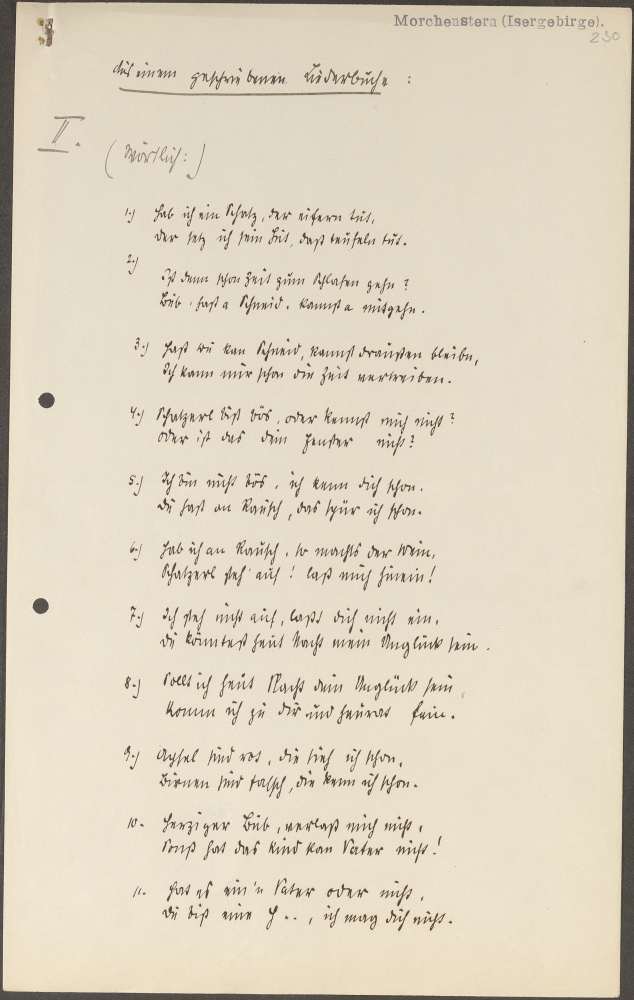 Morchenstern (Isergebirge).
230
Aus einem geschriebenen Liederbuche :
II.
(Wörtlich:)
1.) Hab ich ein Schatz, der eifern tut,
der setz ich sein Hut, daß teufeln tut.
2.)
Ist denn schon Zeit zum Schlafen gehn ?
Bub, hast a Schneid, kannst a mitgehn.
3.) Hast du kan Schneid, kannst draußen bleibn,
Ich kann mir schon die Zeit vertreiben.
4.) Schatzerl bist bös, oder kennst mich nicht ?
oder ist das dein Fenster nicht ?
5.) Ich bin nicht bös, ich kenn dich schon.
Du hast an Rausch, das spür ich schon.
6.) Hab ich an Rausch, so machts der Wein,
Schatzerl steh auf ! laß mich hinein !
7.) Ich steh nicht auf, laß dich nicht ein,
du könntest heut Nacht mein Unglück sein.
8.) Sollt ich heut Nacht dein Unglück sein
komm ich zu dir und heurat fein.
9.) Äpfel sind rot, die sieh ich schon,
Birnen sind falsch, die kenn ich schon.
10. Herziger Bub, verlaß mich nicht,
Sonst hat das Kind kan Vater nicht !
11. Hat es ein'n Vater oder nicht,
du bist eine H .. , ich mag dich nicht.